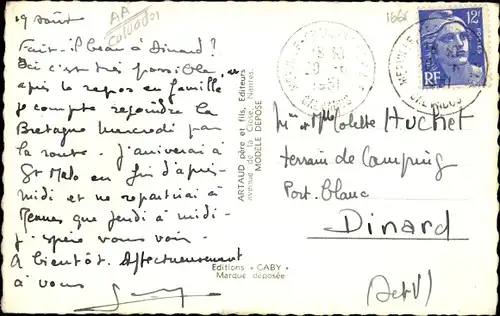 19 août
AA
Calvados
Fait-il beau à Dinard ?
Ici c'est très possible, et
après le repos en famille
je compte rejoindre la
Bretagne mercredi par
la route. J'arriverai à
St Malo en fin d'après-
midi et ne repartirai à
Rennes que jeudi à midi -
J'espère vous voir -
A bientôt. Affectueusement
à vous
ARTAUD père et fils, Editeurs
avenue de la Close, Nantes
MODÈLE DÉPOSÉ
Editions « GABY »
Marque déposée
12F
POSTES
RF
CALVADOS
Mr et Mme Colette Huchet
terrain de Camping
Port-blanc
Dinard
(I et V)